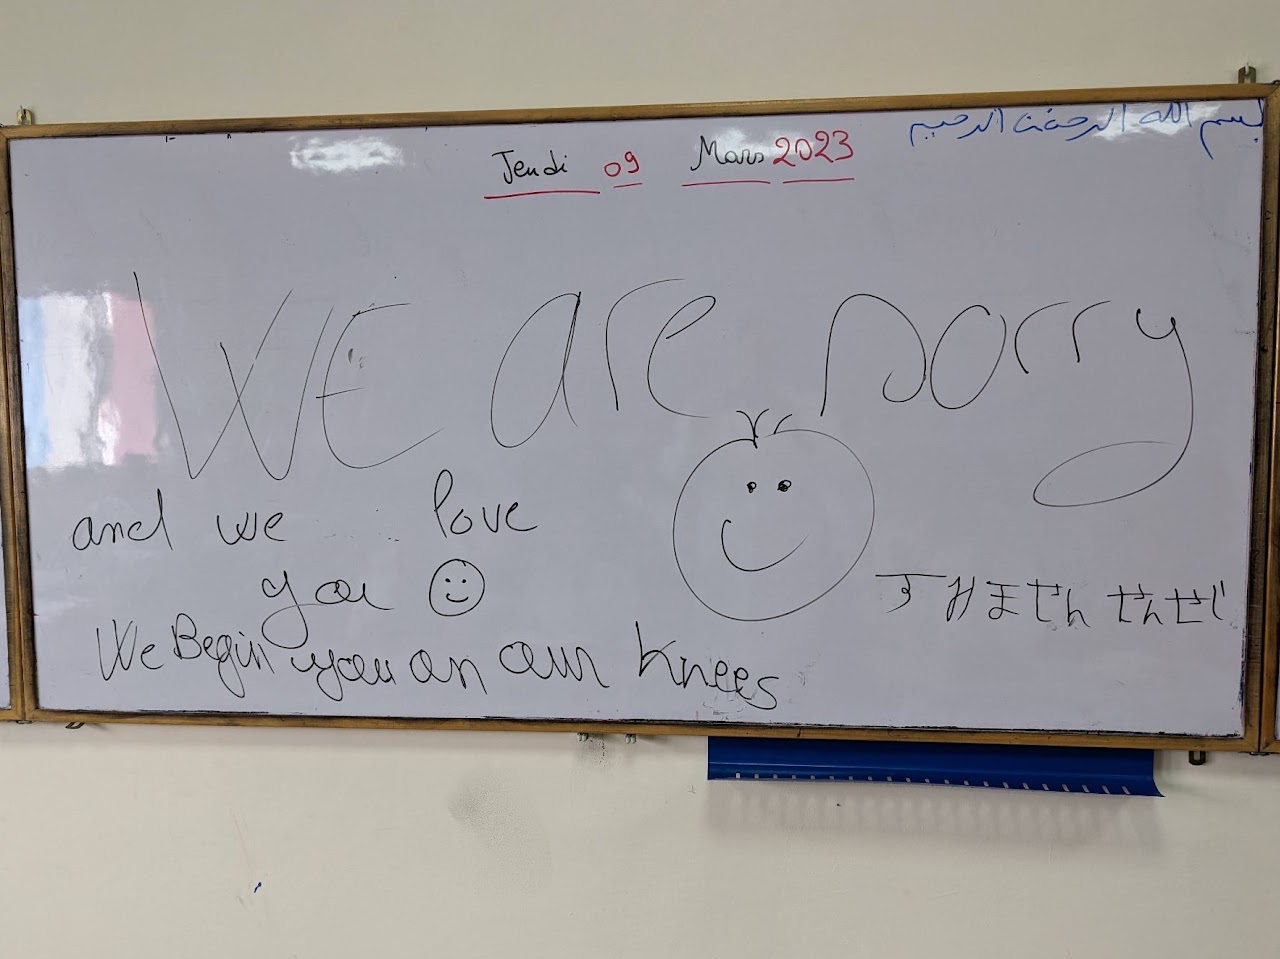 بسم الله الرحمن الرحيم
Jeudi 09 Mars 2023
WE are sorry
and we love
you
We Begin you on our knees
すみません せんせじ